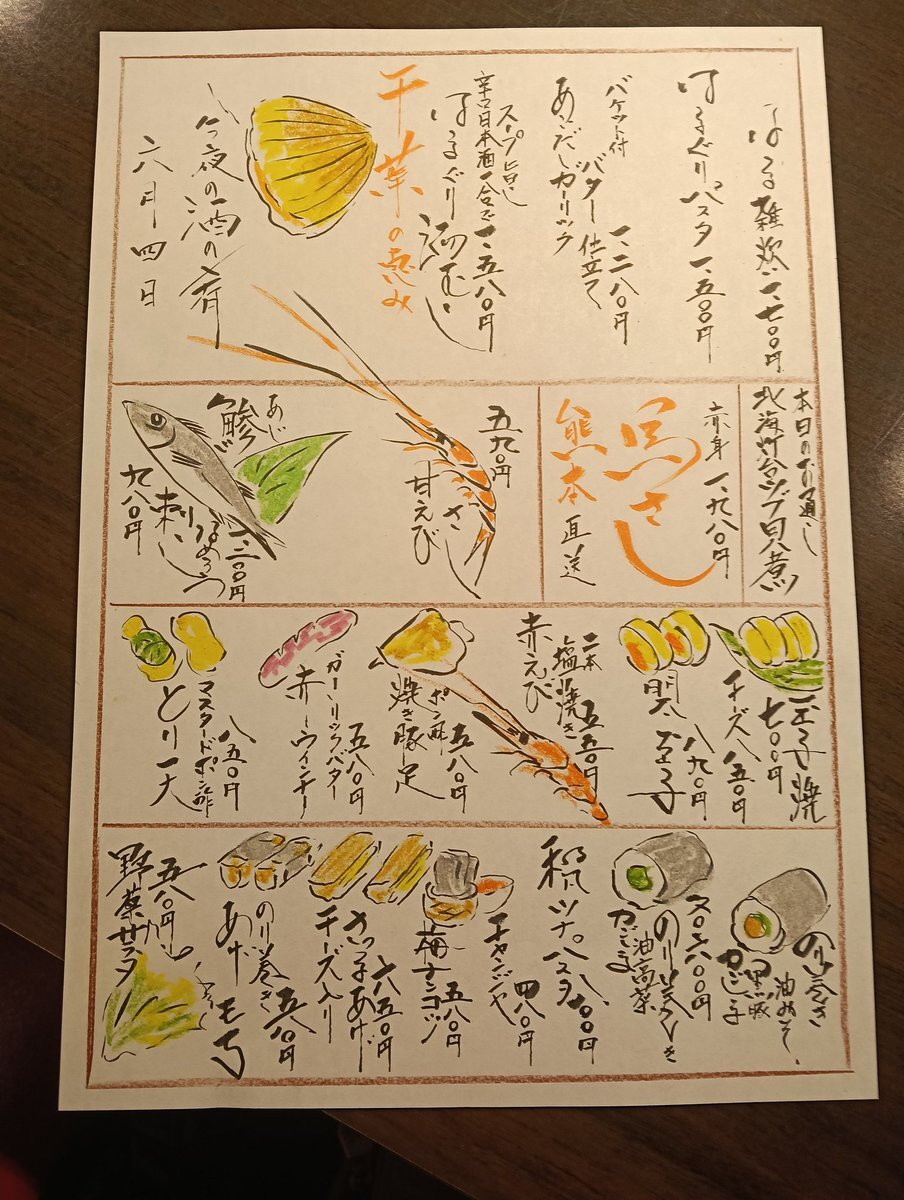 雑炊 一、七〇〇円
はまぐりパスタ 一、五〇〇円
バケット付
バター仕立て 一、二八〇円
ガーリック
スープ旨し
辛口日本酒一合で 一、五八〇円
はまぐり酒むし
千葉の恵み
今夜の酒の肴
六月四日
本日のお通し
北海灯台ツブ貝煮
赤身 一、九八〇円
馬さし
熊本直送
五九〇円
甘えびさし
あじ
鯵
なめろう
刺し
九八〇円
玉子焼
七〇〇円
チーズ 八五〇円
明太玉子
八九〇円
二本 塩焼き 五五〇円
赤えび
ポン酢 五八〇円
焼き豚足
ガーリックバター 五八〇円
赤ウインナー
八五〇円
マスタードポン酢
とり天
のり巻き
油みそ、
黒豚
のり巻き
油高菜
かごしま
和風ツナパスタ 八〇〇円
チャンジャ 四八〇円
梅ナンコツ 五八〇円
さつまあげ 六五〇円
チーズ入り
のり巻き 五八〇円
あげもち
五八〇円
野菜サラダ